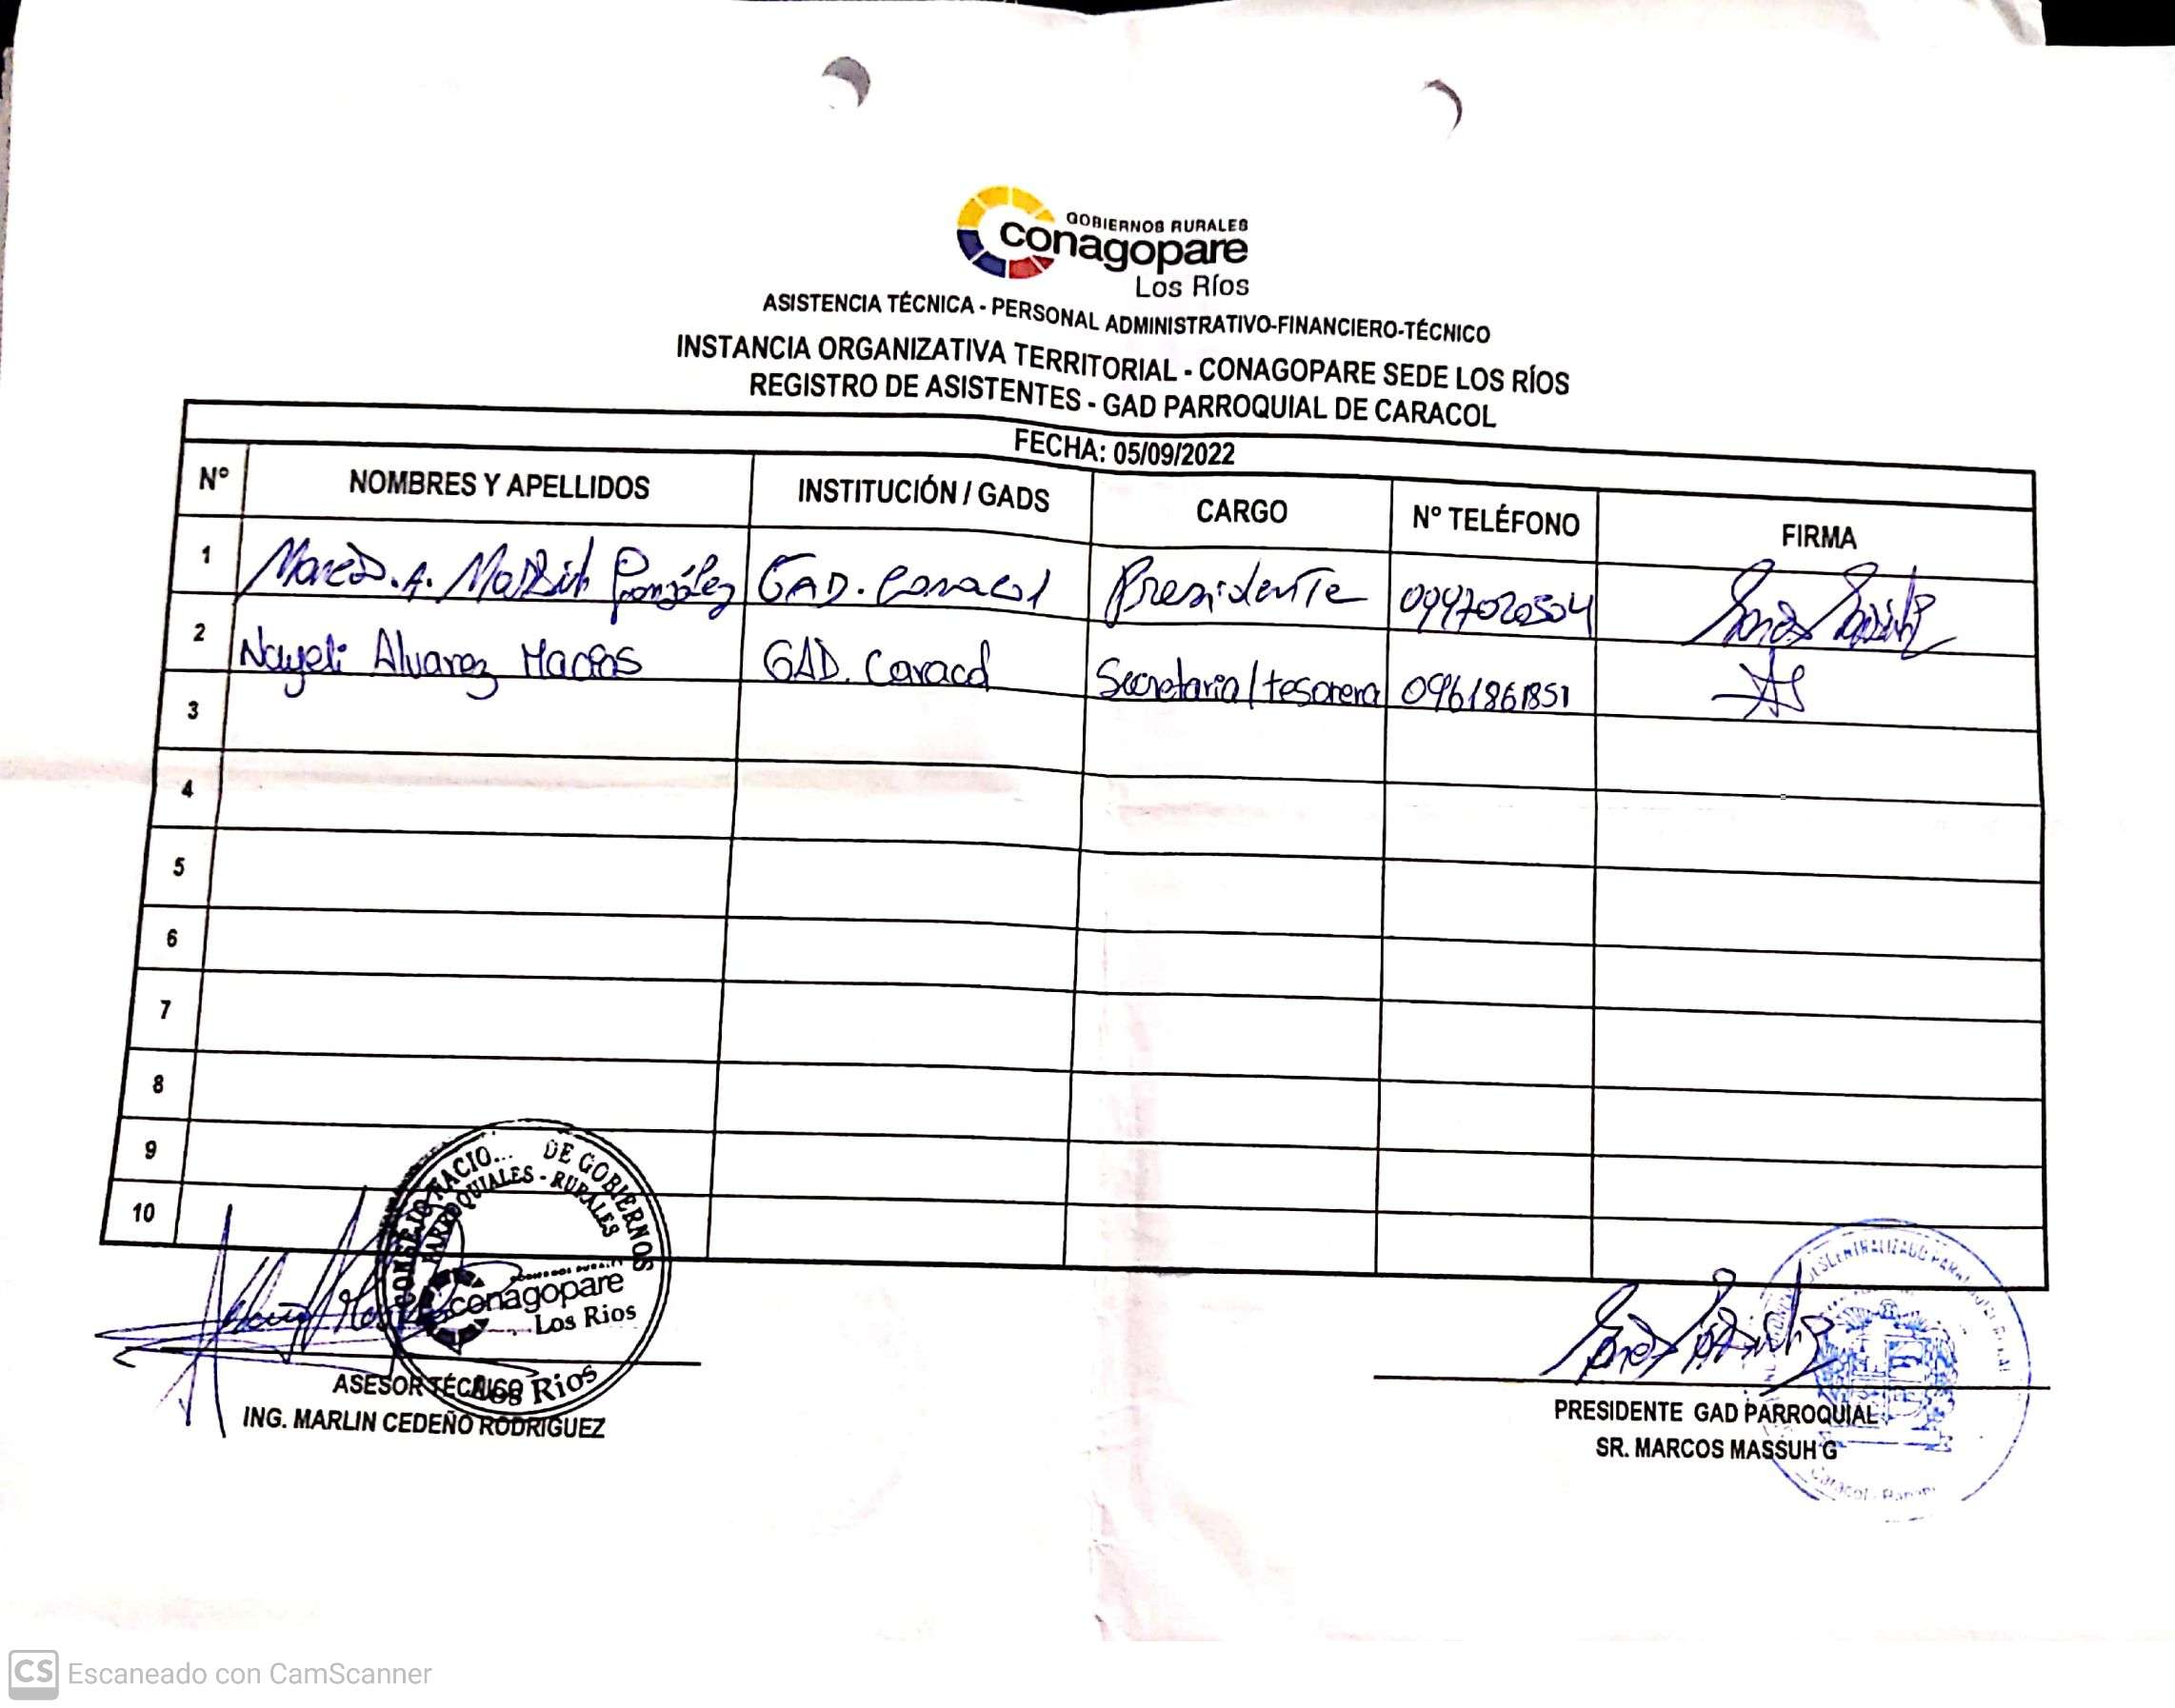 GOBIERNOS RURALES
conagopare
Los Ríos
ASISTENCIA TÉCNICA - PERSONAL ADMINISTRATIVO-FINANCIERO-TÉCNICO
INSTANCIA ORGANIZATIVA TERRITORIAL - CONAGOPARE SEDE LOS RÍOS
REGISTRO DE ASISTENTES - GAD PARROQUIAL DE CARACOL
FECHA: 05/09/2022
Nº NOMBRES Y APELLIDOS INSTITUCIÓN / GADS CARGO Nº TELÉFONO FIRMA
1 Marcos. A. Massuh González GAD. Caracol Presidente 0997020504
2 Nayeli Alvarez Macías GAD. Caracol Secretaria/tesorera 0961861851
3
4
5
6
7
8
9
10
CONSEJO NACIO... DE GOBIERNOS
PARROQUIALES - RURALES
conagopare
Los Rios
Los Rios
ASESOR TÉCNICO
ING. MARLIN CEDEÑO RODRIGUEZ
PRESIDENTE GAD PARROQUIAL
SR. MARCOS MASSUH G
Caracol
CS Escaneado con CamScanner